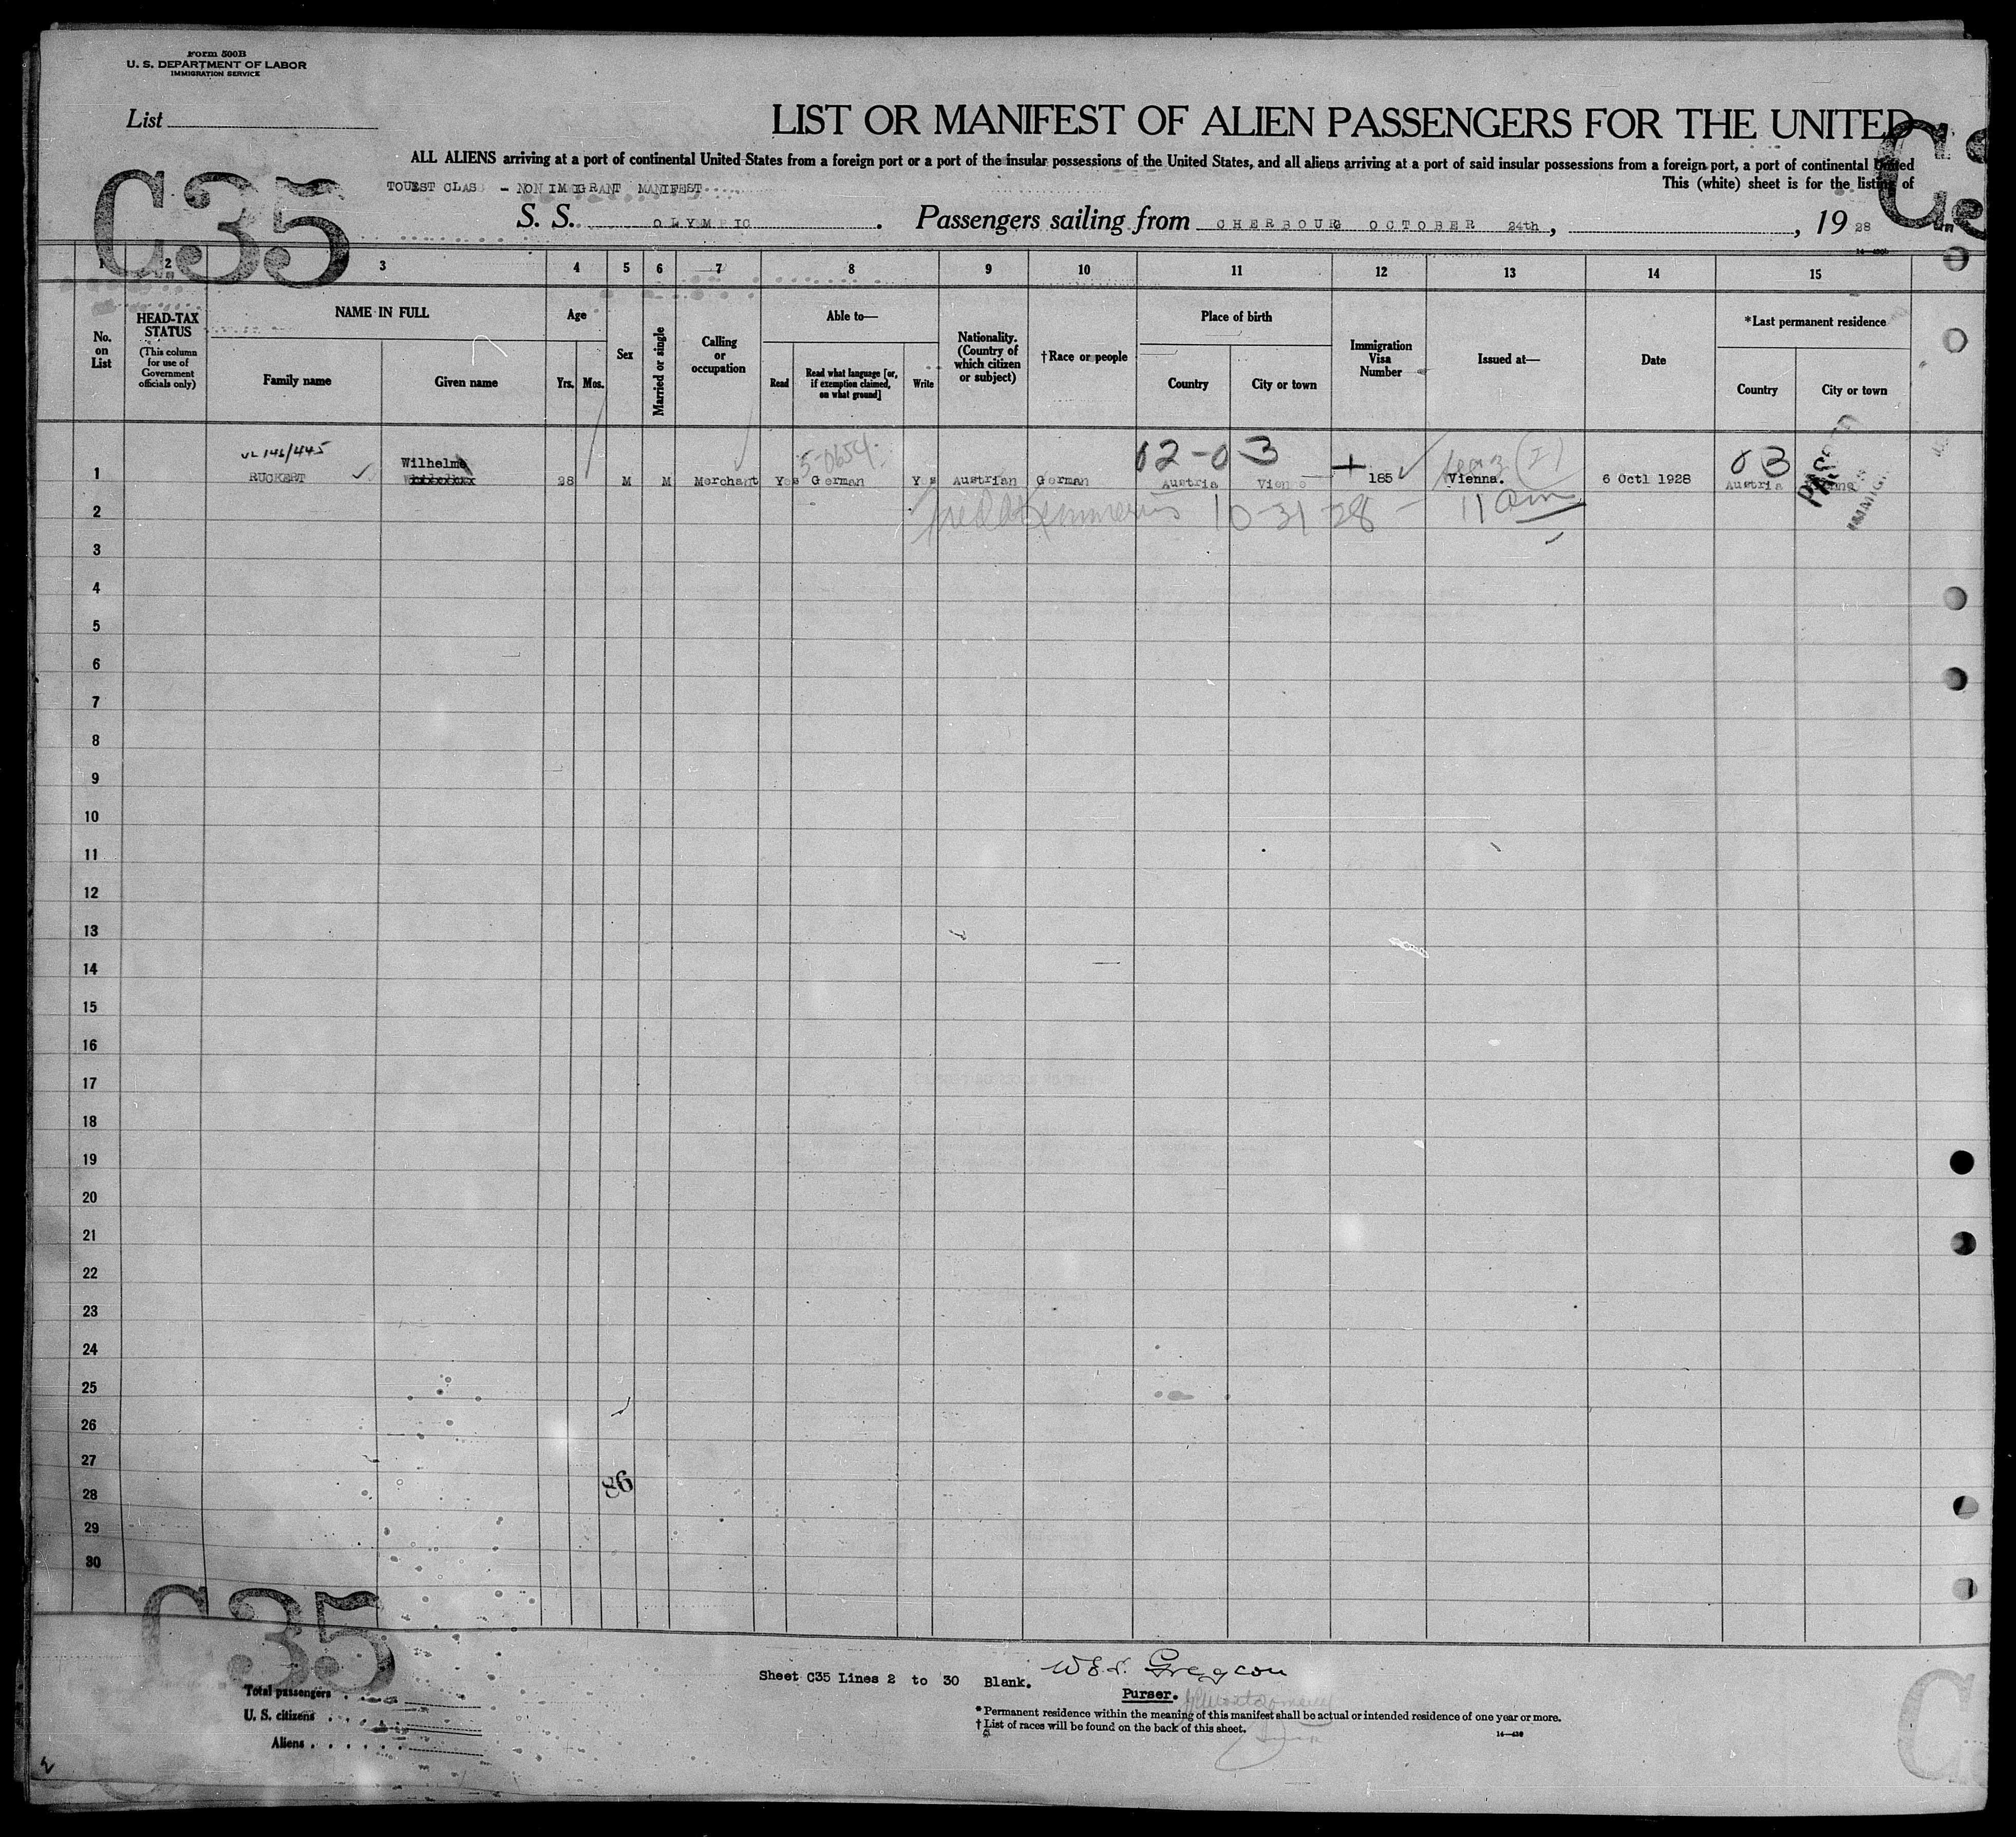 Form 500B
U. S. DEPARTMENT OF LABOR
IMMIGRATION SERVICE
List
LIST OR MANIFEST OF ALIEN PASSENGERS FOR THE UNITED
ALL ALIENS arriving at a port of continental United States from a foreign port or a port of the insular possessions of the United States, and all aliens arriving at a port of said insular possessions from a foreign port, a port of continental United
This (white) sheet is for the listing of
TOUIST CLASS - NON IMMIGRANT MANIFEST
C35
S. S. OLYMPIC. Passengers sailing from CHERBOURG OCTOBER 24th, , 19 28
1 2 3 4 5 6 7 8 9 10 11 12 13 14 15
No. on List
HEAD-TAX STATUS (This column for use of Government officials only)
NAME IN FULL
Family name Given name
Age
Yrs. Mos.
Sex
Married or single
Calling or occupation
Able to—
Read Read what language [or, if exemption claimed, on what ground] Write
Nationality. (Country of which citizen or subject)
†Race or people
Place of birth
Country City or town
Immigration Visa Number
Issued at—
Date
*Last permanent residence
Country City or town
146/445 Wilhelm 5-0654 02-03 03
1 RUCKERT 28 M M Merchant Yes German Yes Austrian German Austria Vienna 185 Vienna. 6 Octl 1928 Austria Vienna
2 10-31-28 - 11 am
3
4
5
6
7
8
9
10
11
12
13
14
15
16
17
18
19
20
21
22
23
24
25
26
27
86
28
29
30
C35
Sheet C35 Lines 2 to 30 Blank.
Purser.
Total passengers
U. S. citizens
Aliens
* Permanent residence within the meaning of this manifest shall be actual or intended residence of one year or more.
† List of races will be found on the back of this sheet.
14—430